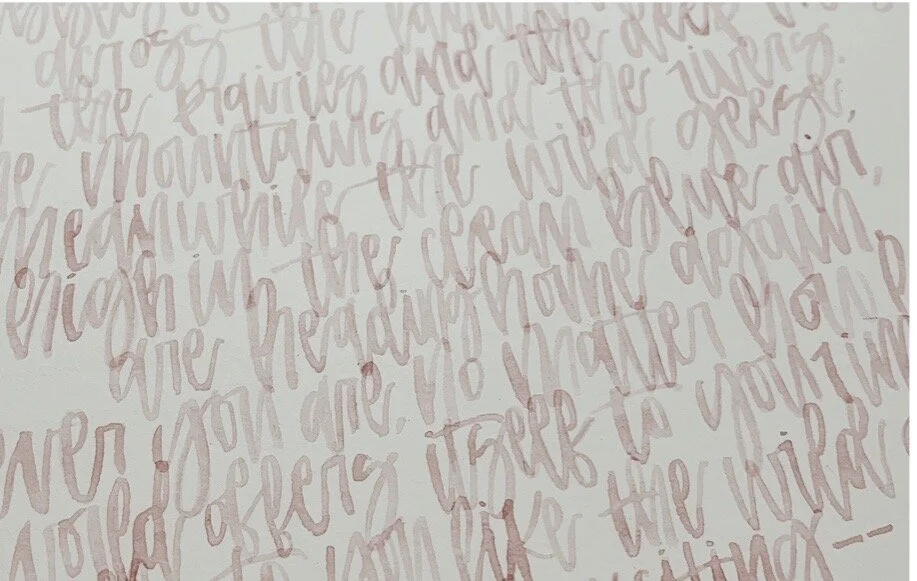 across the
the prairies and the deep
the mountains and the rivers.
meanwhile the wild geese,
high in the clean blue air,
are heading home again,
ver you are, no matter how
world offers itself to your im
to you like the wild
citing—